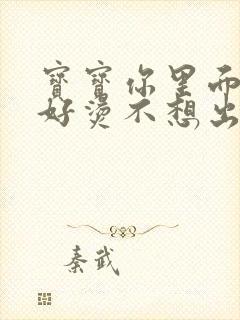 寶寶你里面
好燙不想出
秦武